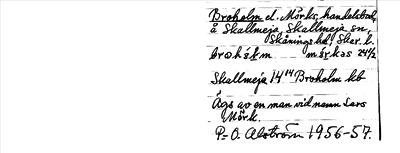 Broholm el. Mörks, handelsbod,
å Skallmeja, Skallmeja sn,
Skånings hd, Skar. l.
brohɔlm mœrkəs 24/2
Skallmeja 1 4/14 Broholm kb
Ägs av en man vid namn Lars
Mörk.
P.-O. Alström 1956-57.